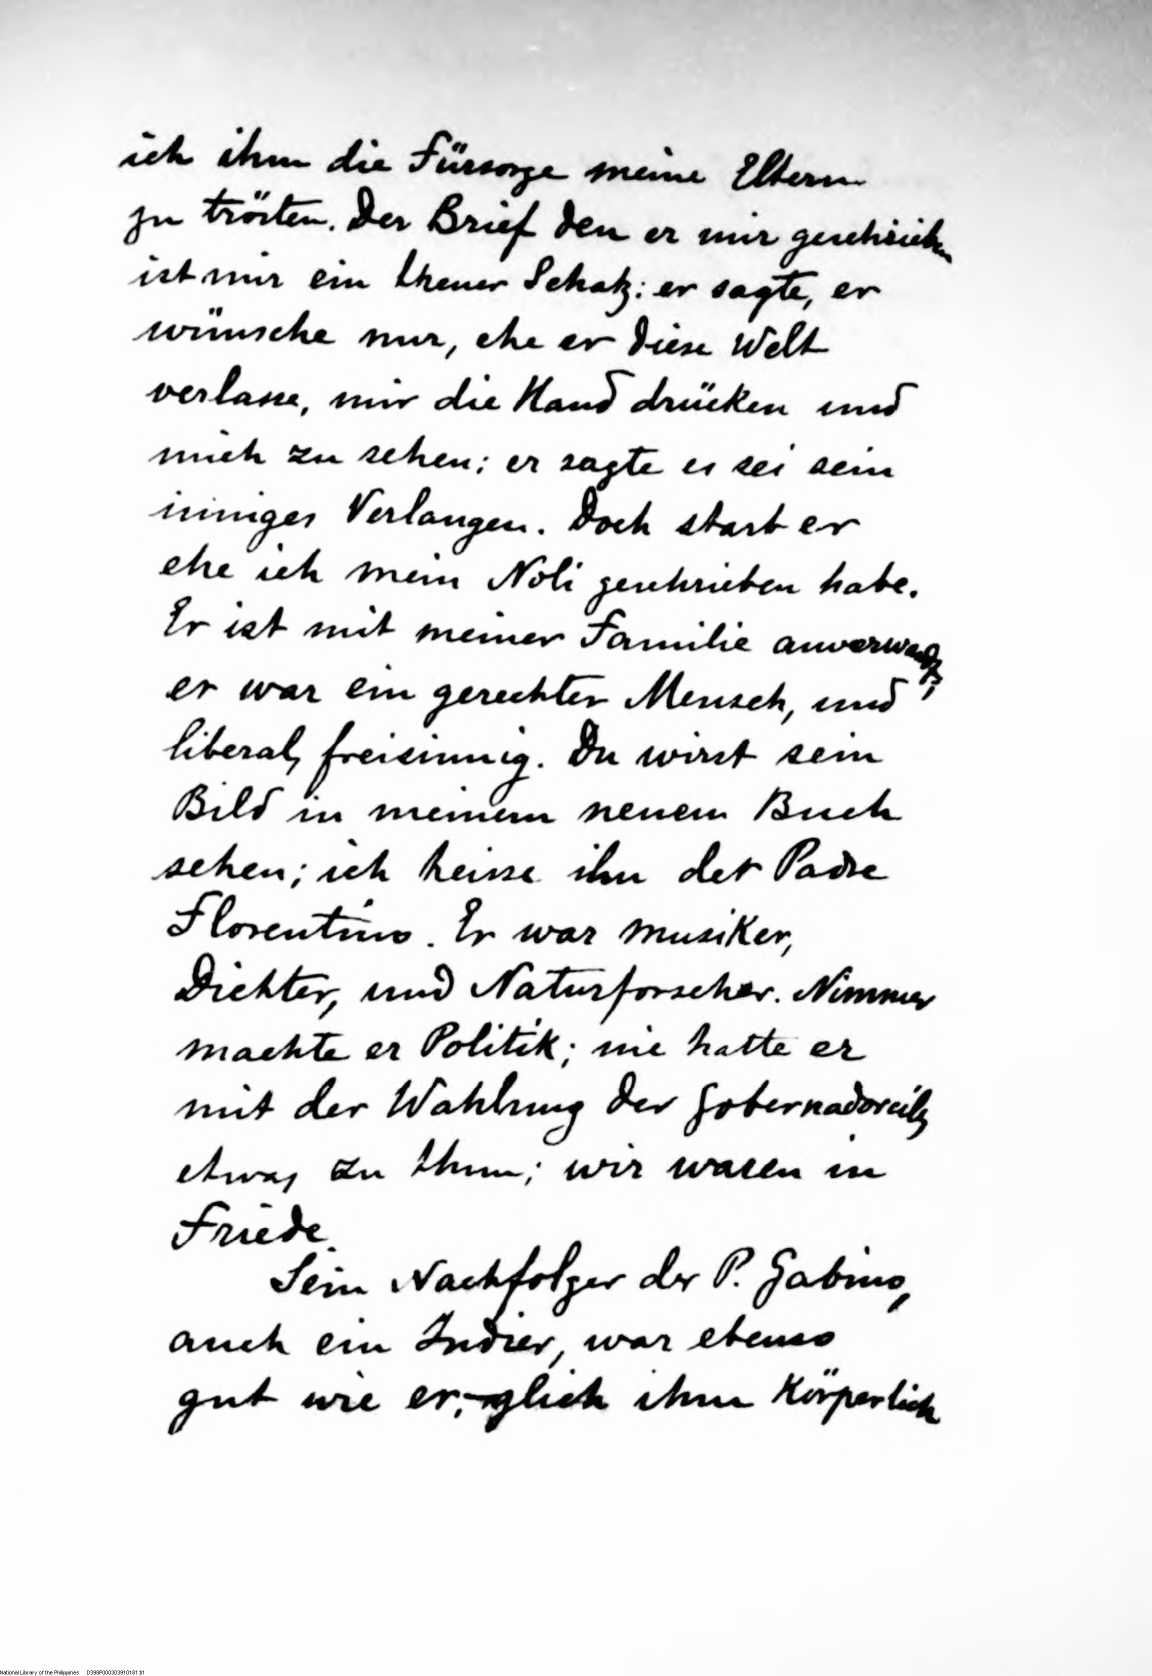 ich ihm die Fürsorge meine Eltern
zu trösten. Der Brief den er mir geschrieben
ist mir ein theuer Schatz: er sagte, er
wünsche nur, ehe er diese Welt
verlasse, mir die Hand drücken und
mich zu sehen; er sagte es sei sein
inniges Verlangen. Doch starb er
ehe ich mein Noli geschrieben habe.
Er ist mit meiner Familie
er war ein gerechter Mensch, und
liberal, freisinnig. Du wirst sein
Bild in meinem neuem Buch
sehen; ich heisse ihn der Padre
Florentino. Er war Musiker,
Dichter, und Naturforscher. Nimmer
machte er Politik; nie hatte er
mit der Wahlung der
etwas zu thun; wir waren in
Friede.
Sein Nachfolger der P. Gabino,
auch ein Indier, war ebenso
gut wie er, glich ihm Körperlich
National Library of the Philippines